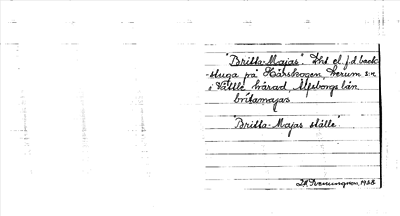 "Britta-Majas". Lht el. f.d back-
stuga på Härskogen, Lerum s:n
i Vättle härad, Älfsborgs län
britamajas
"Britta-Majas ställe".
1928